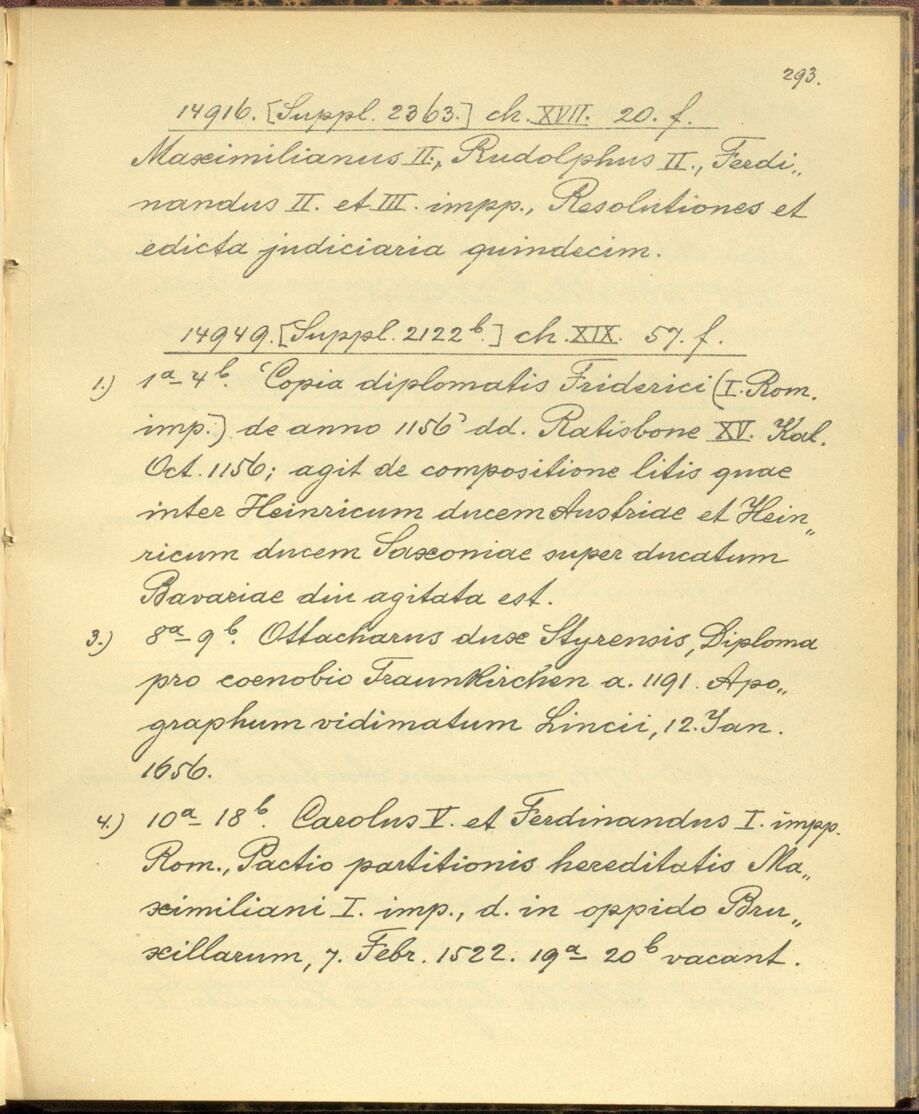 293.
14916. [Suppl. 2363.] ch. XVII. 20. f.
Maximilianus II., Rudolphus II., Ferdi„
nandus II. et III. impp., Resolutiones et
edicta judiciaria quindecim.
14949. [Suppl. 2122b.] ch. XIX. 57. f.
1.) 1a–4b. 'Copia diplomatis Friderici (I. Rom.
imp.) de anno 1156' dd. Ratisbone XV. Kal.
Oct. 1156; agit de compositione litis quae
inter Heinricum ducem Austriae et Hein„
ricum ducem Saxoniae super ducatum
Bavariae diu agitata est.
3.) 8a–9b. Ottacharus dux Styrensis, Diploma
pro coenobio Traunkirchen a. 1191. Apo„
graphum vidimatum Lincii, 12. Jan.
1656.
4.) 10a–18b. Carolus V. et Ferdinandus I. impp.
Rom., Pactio partitionis hereditatis Ma„
ximiliani I. imp., d. in oppido Bru„
xillarum, 7. Febr. 1522. 19a–20b vacant.